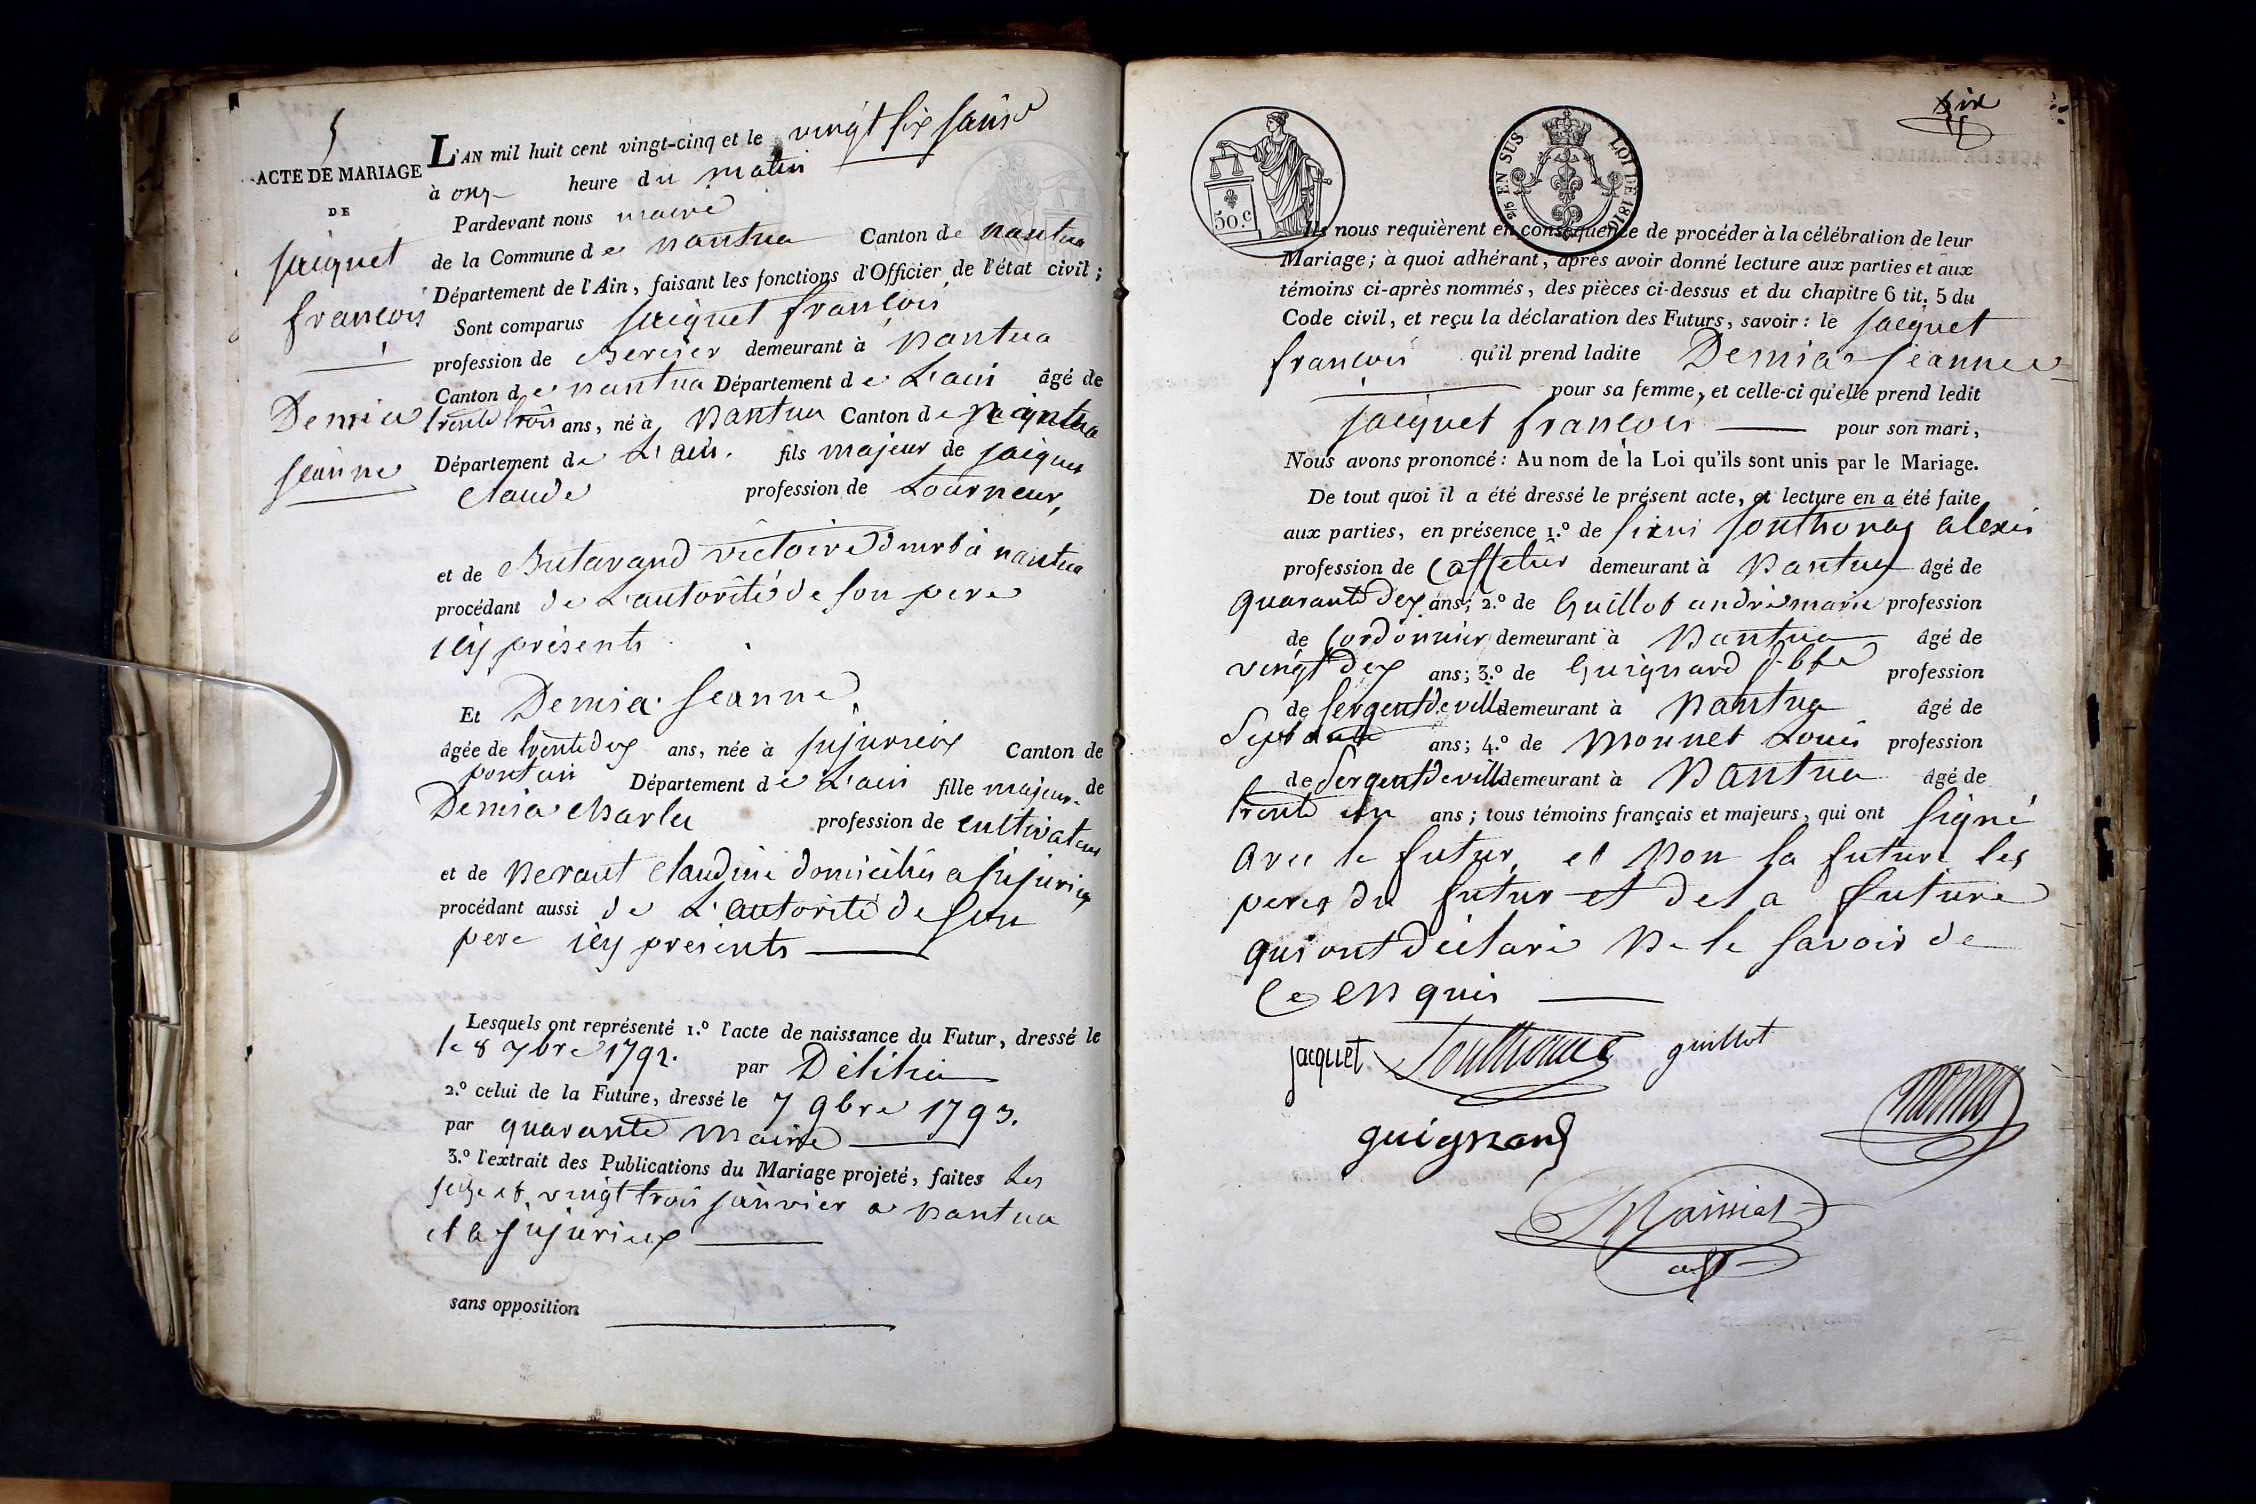 5
ACTE DE MARIAGE
DE
jacquet
francois
Demia
jeanne
L'AN mil huit cent vingt-cinq et le vingt six janv
à onz heure du matin
Pardevant nous maire
de la Commune de nantua Canton de nantua
Département de l'Ain, faisant les fonctions d'Officier de l'état civil;
Sont comparus jacquet francois
profession de demeurant à nantua
Canton de nantua Département de L'ain âgé de
trente trois ans, né à nantua Canton de nantua
Département de L'ain. fils majeur de jacquet
claude profession de tourneur,
et de Butavand victoire dmt à nantua
procédant de L'autorité de son pere
icy présents
Et Demia jeanne
âgée de trente deux ans, née à jujurieux Canton de
pontain Département de L'ain fille majeur de
Demia charles profession de cultivateur
et de neraut claudine domiciliés a jujurieux
procédant aussi de L'autorité de son
pere icy presents
Lesquels ont représenté 1.º l'acte de naissance du Futur, dressé le
le 8 7bre 1792. par Délilia
2.º celui de la Future, dressé le 7 9bre 1793.
par quarante maire
3.º l'extrait des Publications du Mariage projeté, faites les
seize et vingt trois janvier a nantua
et a jujurieux
sans opposition
six
50.c
2/5 EN SUS LOI DE 1816
Ils nous requièrent en conséquence de procéder à la célébration de leur
Mariage; à quoi adhérant, après avoir donné lecture aux parties et aux
témoins ci-après nommés, des pièces ci-dessus et du chapitre 6 tit. 5 du
Code civil, et reçu la déclaration des Futurs, savoir: le jacquet
francois qu'il prend ladite Demia jeanne
pour sa femme, et celle-ci qu'elle prend ledit
jacquet francois pour son mari,
Nous avons prononcé: Au nom de la Loi qu'ils sont unis par le Mariage.
De tout quoi il a été dressé le présent acte, et lecture en a été faite
aux parties, en présence 1.º de sieur sonthonax alexis
profession de caffetier demeurant à nantua âgé de
quarante deux ans; 2.º de Guillot andré marie profession
de cordonnier demeurant à nantua âgé de
vingt deux ans; 3.º de Guignard j. bte profession
de sergent de ville demeurant à nantua âgé de
ans; 4.º de monnet Louis profession
de sergent de ville demeurant à nantua âgé de
trente un ans; tous témoins français et majeurs, qui ont signé
avec le futur, et non la future les
peres du futur et de la future
qui ont déclaré ne le savoir de
ce enquis
jacquet Sonthonax guillot
guignard